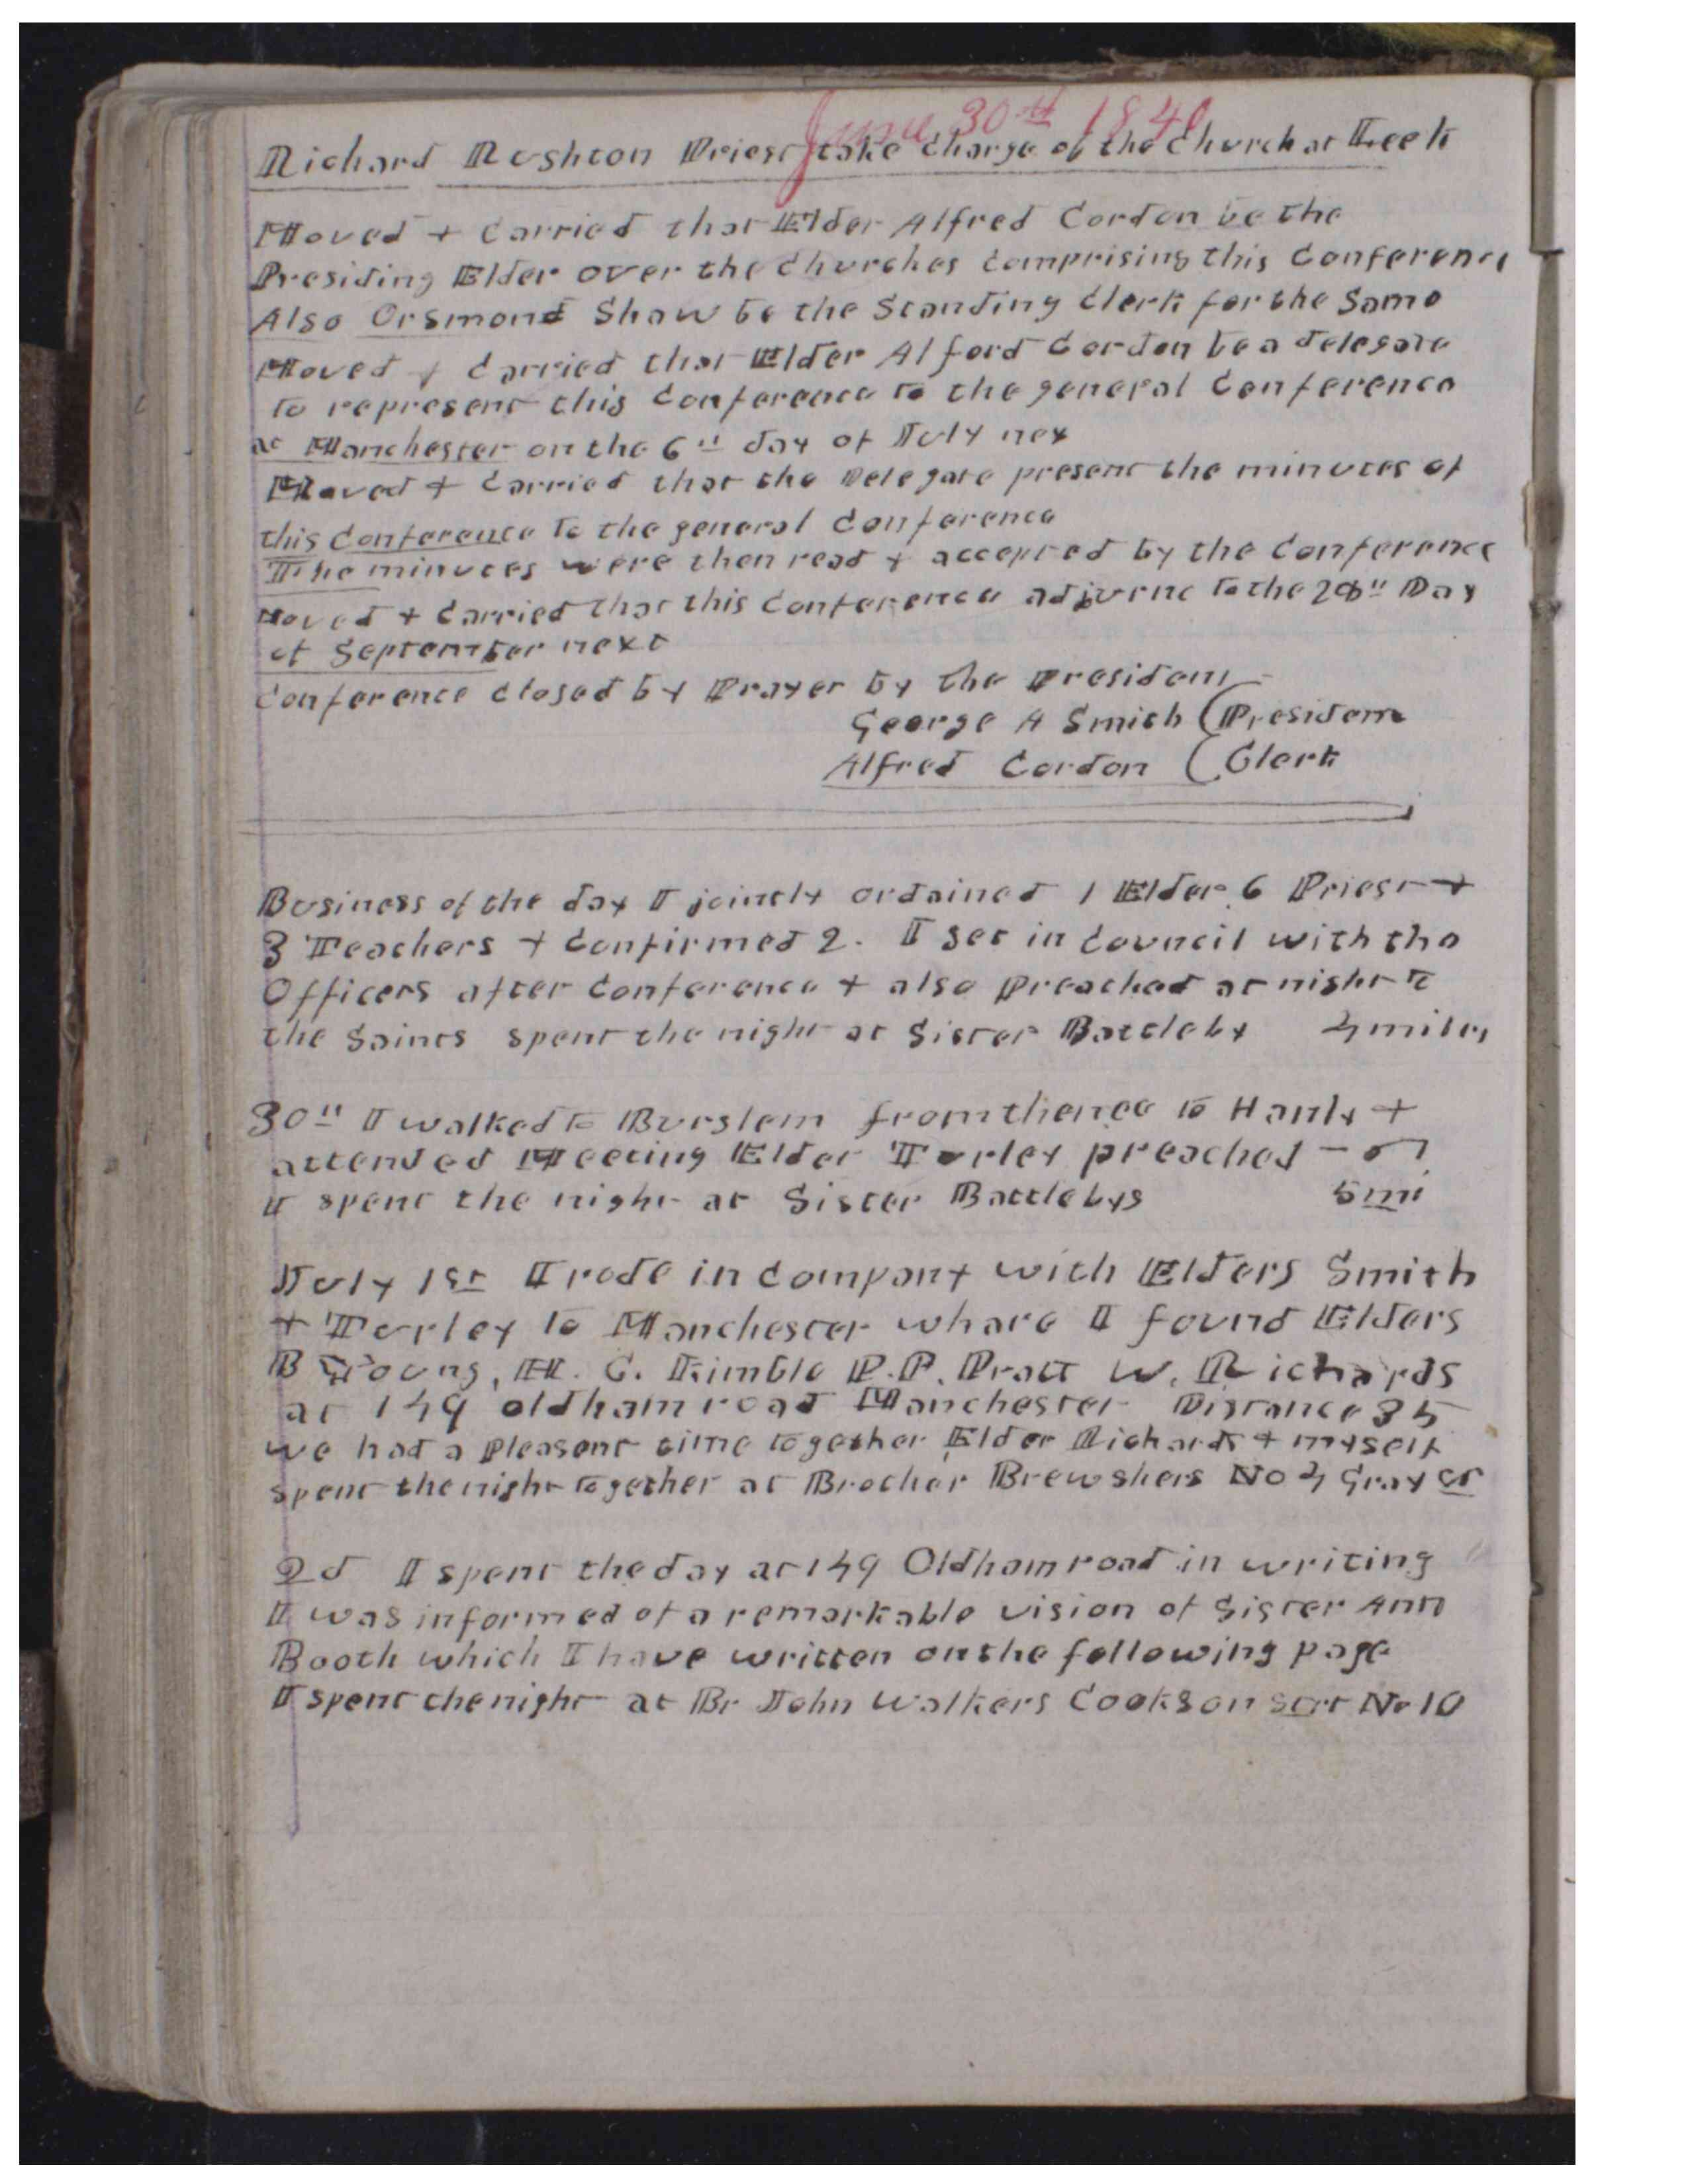 June 30th 1840
Richard Rushton Priest take charge of the Church at Leek
Moved + Carried that Elder Alfred Cordon be the
Presiding Elder over the Churches Comprising this Conference
Also Orsmond Shaw be the Standing Clerk for the Same
Moved + Carried that Elder Alford Cordon be a delegate
to represent this Conference to the general Conference
at Manchester on the 6th day of July nex
Moved + Carried that the Delegate present the minutes of
this Conference to the general Conference
The minutes were then read + accepted by the Conference
Moved + Carried that this Conference adjurne to the 28th Day
of September next
Conference closed by Prayer by the President
George A Smith (President
Alfred Cordon (Clerk
Business of the day I jointly ordained 1 Elder 6 Priest +
3 Teachers + Confirmed 2. I set in Council with the
Officers after Conference + also Preached at night to
the Saints spent the night at Sister Battleby 4 miles
30th I walked to Burslem from thence to Hanly +
attended Meeting Elder Turley preached
I spent the night at Sister Battlebys 5 mi
July 1st I rode in company with Elders Smith
+ Turley to Manchester whare I found Elders
B Young, H. C. Kimble P. P. Pratt W. Richards
at 149 oldham road Manchester Distance 35
we had a Pleasent time together Elder Richards + myself
spent the night together at Brother Brewshers No 4 Gray st
2d I spent the day at 149 Oldham road in writing
I was informed of a remarkable vision of Sister Ann
Booth which I have written on the following page
I spent the night at Br John Walkers Cookson Stt No 10